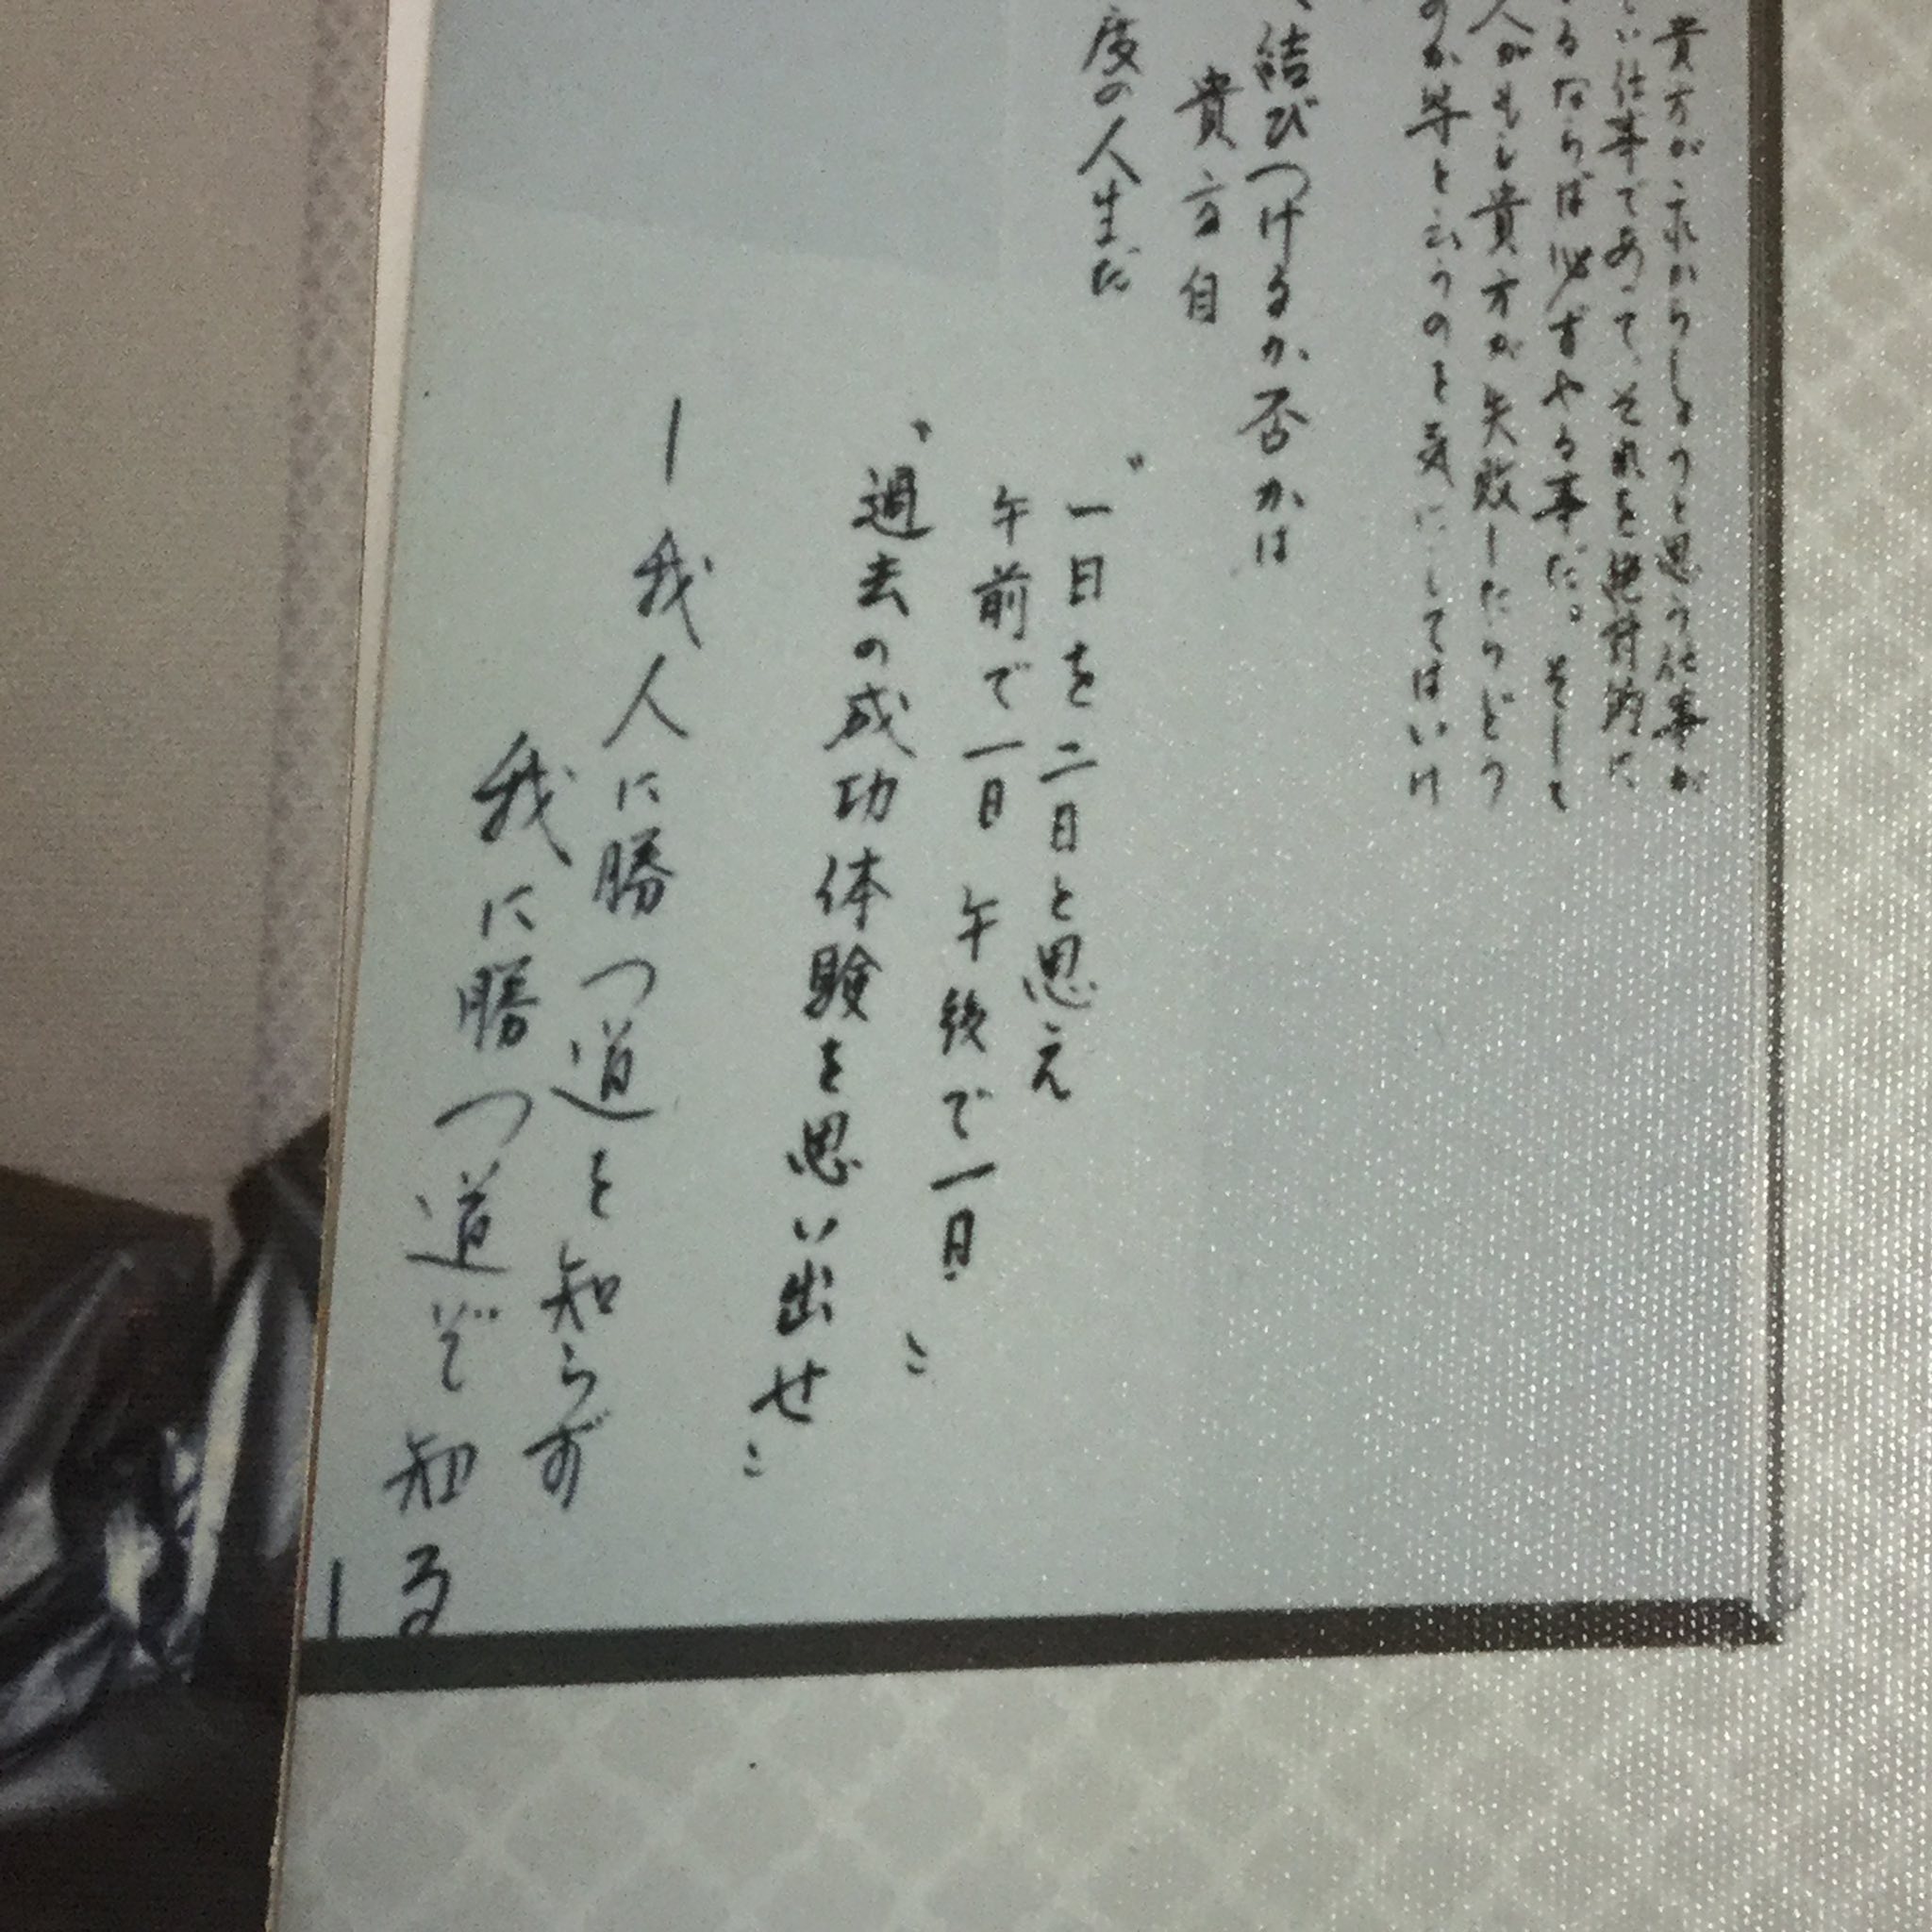 貴方が之れからしようと思う仕事が
い仕事であって、それを絶対的に
るならば必ずやる事だ。そして
人がもし貴方が失敗したらどう
のか等と云うのを気にしてはいけ
結びつけるか否かは
貴方自
度の人生だ
“一日を二日と思え
午前で一日 午後で一日”
“過去の成功体験を思い出せ”
―我人に勝つ道を知らず
我に勝つ道ぞ知る―